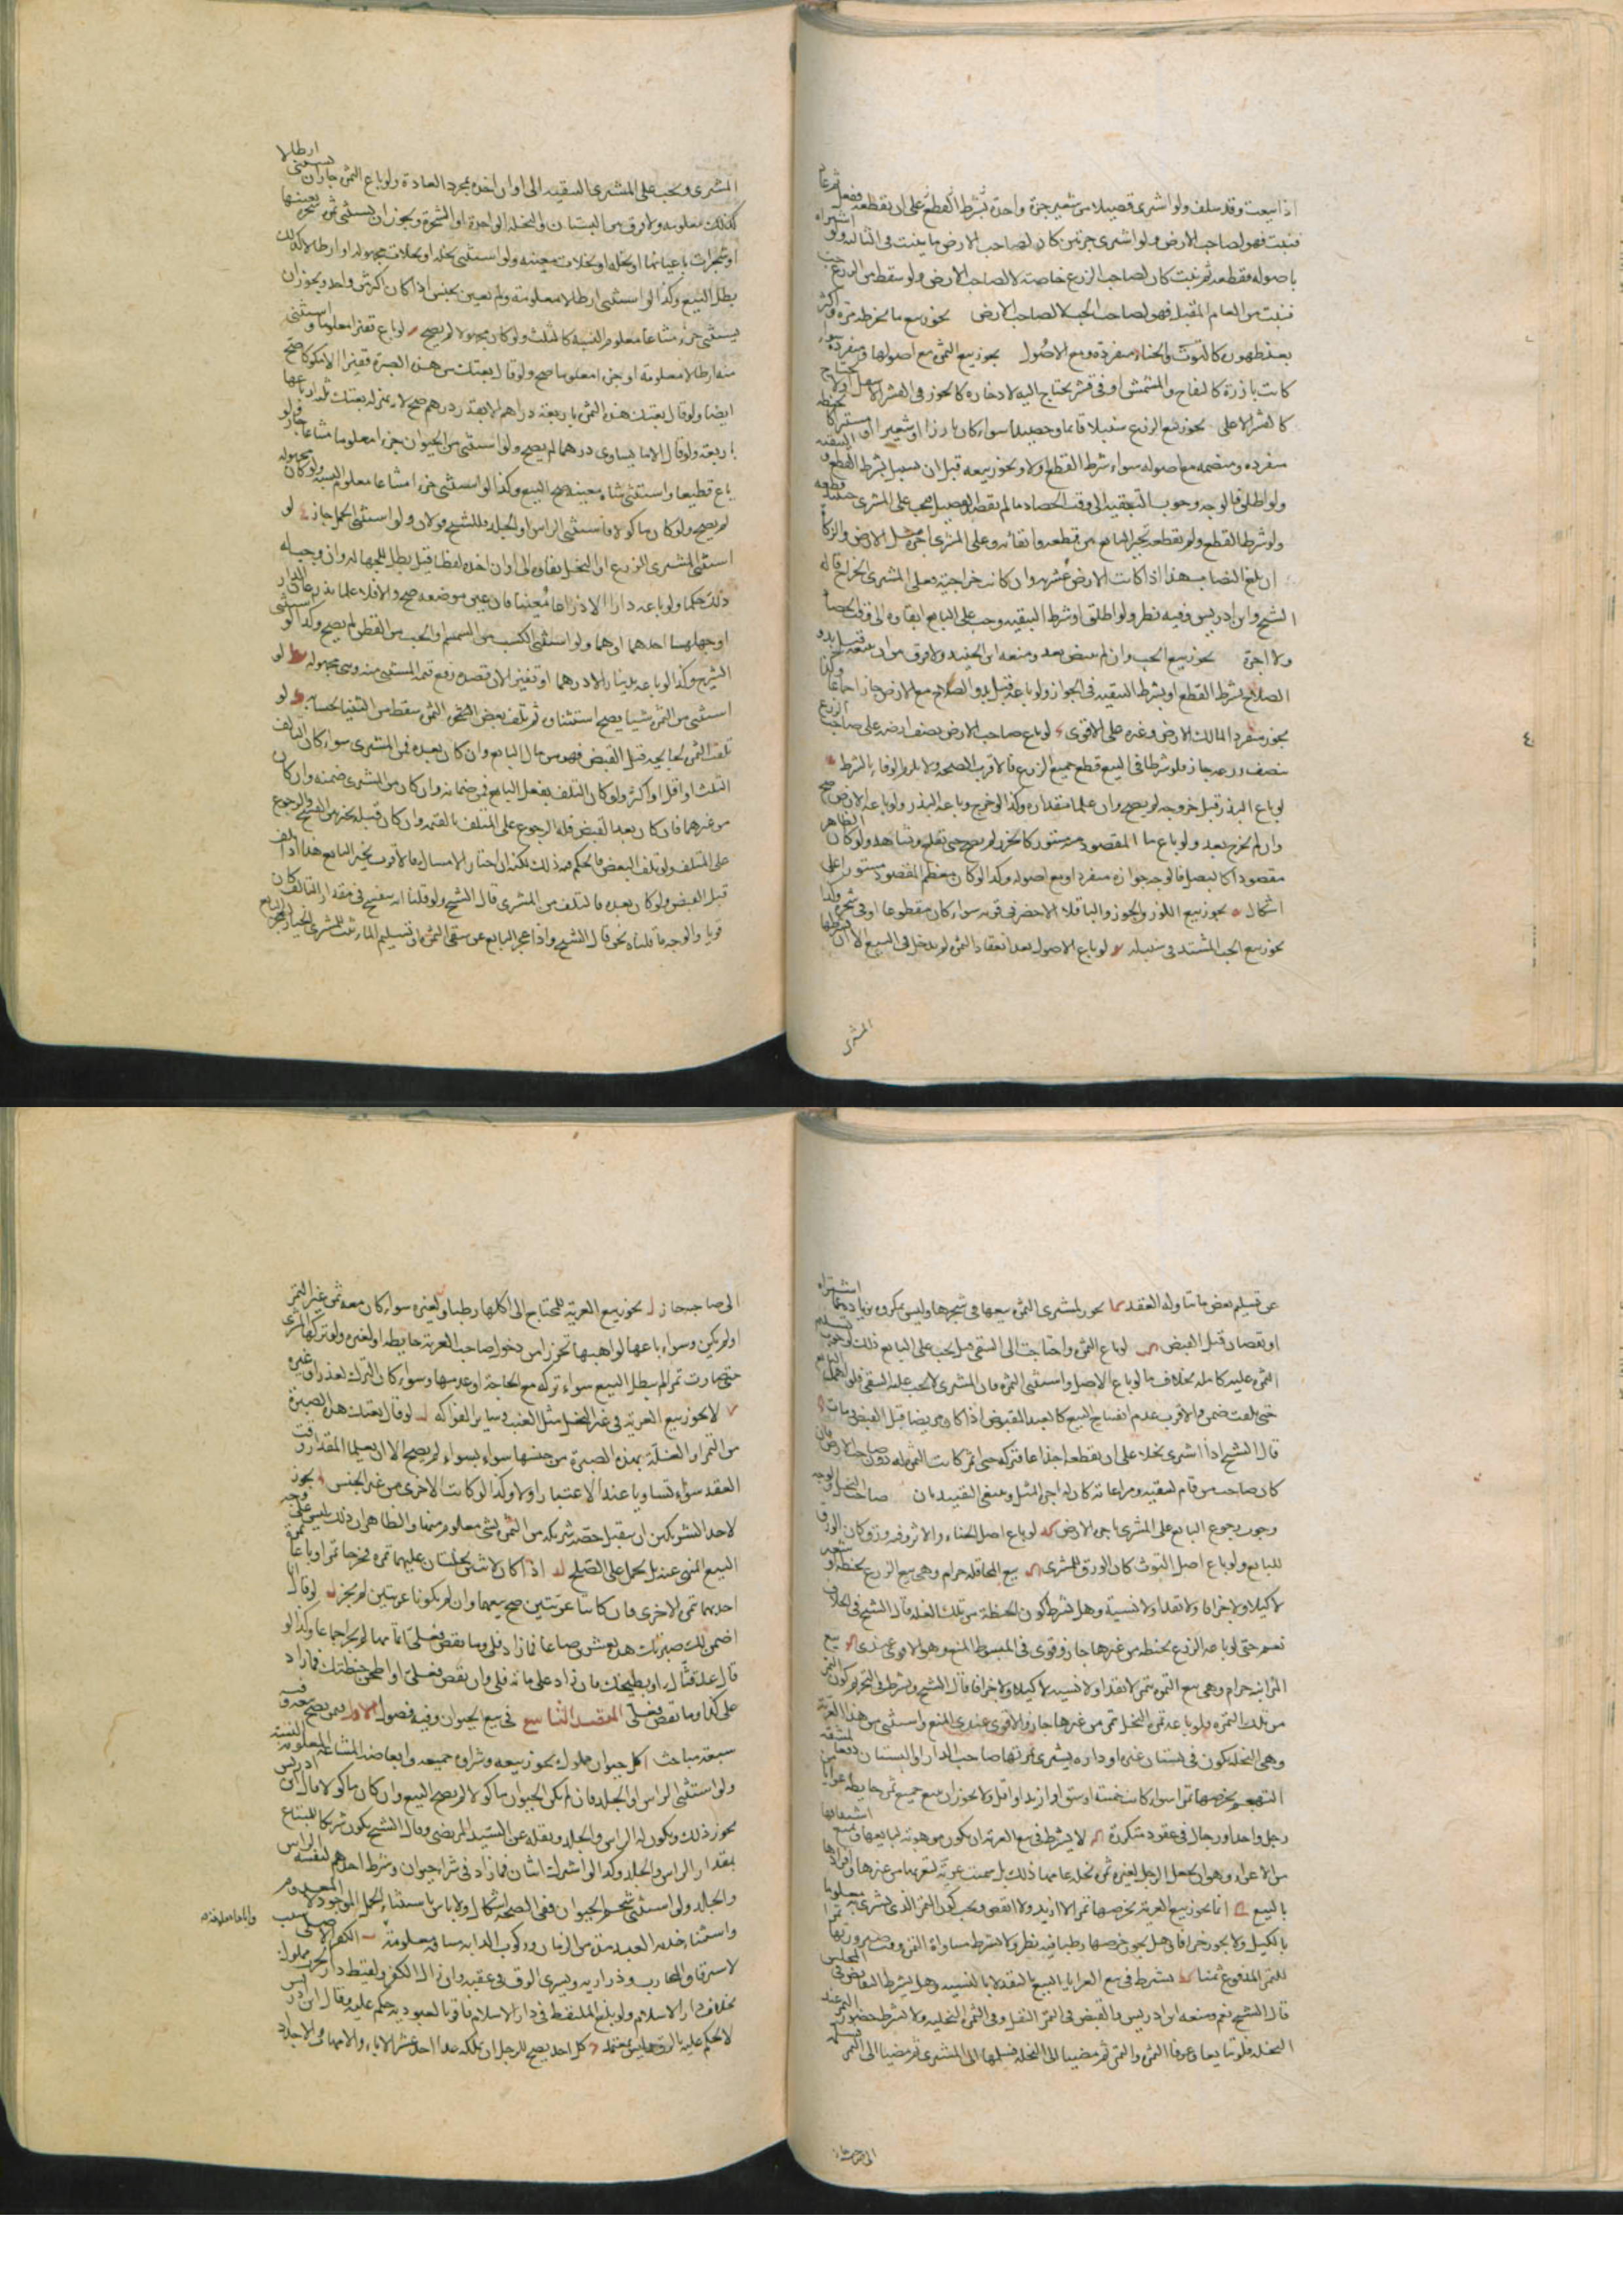 اذا بيعت وقد سلف ولو اشترى قصيلا من شعير جزة واحدة بشرط القطع على ان يقطعه ففعل ثم عاد
فنبت فهو لصاحب الارض ولو اشترى جزتين كان لصاحب الارض ما ينبت في الثالثة ولو اشتراه
باصوله فقطعه ثم نبت كان لصاحب الزرع خاصة لا لصاحب الارض ولو سقط من الزرع حب
فنبت من العام المقبل فهو لصاحب الحب لا لصاحب الارض يجوز بيع ما يخرط مرة واكثر
بعد ظهوره كالتوت والحناء منفردة ومع الاصول يجوز بيع الثمرة مع اصولها ومنفردة سواء
كانت بارزة كالتفاح والمشمش او في قشر يحتاج اليه لادخاره كالجوز في القشر الاسفل او لا يحتاج
كالقشر الاعلى يجوز بيع الزرع سنبلا قائما وحصيدا سواء كان بارزا او شعيرا او مستترا كالحنطة
منفردة ومنضمة مع اصوله سواء شرط القطع او لا ويجوز بيعه قبل ان يسنبل بشرط القطع والتبقية
ولو اطلق فالوجه وجوب التبقية الى وقت الحصاد ما لم يقصد القصيل فيجب على المشترى قطعه حينئذ
ولو شرط القطع ولم يقطعه تخير البائع بين قطعه وابقائه وعلى المشترى اجرة مثل الارض والزكاة
ان بلغ النصاب هذا اذا كانت الارض عشرية وان كانت خراجية فعلى المشترى الخراج قاله
الشيخ وابن ادريس وفيه نظر ولو اطلق او شرط التبقية وجب على البائع ابقاؤه الى وقت الحصاد
ولا اجرة يجوز بيع الحب وان لم يبيض بعد ومنعه ابن الجنيد ولا فرق بين ان يبيعه قبل بدو
الصلاح بشرط القطع او بشرط التبقية في الجواز ولو باعه قبل بدو الصلاح مع الارض جاز اجماعا وكذا
يجوز منفردا لمالك الارض وغيره على الاقوى لو باع صاحب الارض نصف ارضه على صاحب الزرع
بنصف زرعه جاز فلو شرطا في البيع قطع جميع الزرع فالاقرب الصحة ولا يلزم الوفاء بالشرط
لو باع البذر قبل خروجه لم يصح وان علما مقداره وكذا لو خرج وباعه البذر ولو باعه الارض صح
وان لم يخرج بعد ولو باع ما المقصود منه مستور كالجزر لم يصح حتى يقلع ويشاهد ولو كان الظاهر
مقصودا كالبصل فالوجه جوازه منفردا ومع اصوله وكذا لو كان معظم المقصود مستورا على
اشكال يجوز بيع اللوز والجوز والباقلا الاخضر في قشره سواء كان مقطوعا او في شجره وكذا
يجوز بيع الحب المشتد في سنبله لو باع الاصول بعد انعقاد الثمرة لم يدخل في البيع الا ان يشترطها
المشترى
المشترى ويجب على المشترى التبقية الى اوان اخذه بمجرد العادة ولو باع الثمرة جاز ان يستثنى ارطالا
كذلك معلومة ولا فرق بين البستان والنخلة الواحدة او الشجرة ويجوز ان يستثنى ثمرة شجرة بعينها
او شجرات باعيانها او نخلة او نخلات معينة ولو استثنى نخلة او نخلات مجهولة او ارطالا كذلك
بطل البيع وكذا لو استثنى ارطالا معلومة ولم تعين بجنس اذا كان اكثر من واحد ويجوز ان
يستثنى جزء مشاعا معلوم النسبة كالثلث ولو كان مجهولا لم يصح لو باع قفيزا معلوما واستثنى
منه ارطالا معلومة او جزءا معلوما صح ولو قال بعتك من هذه الصبرة قفيزا الا مكوكا صح
ايضا ولو قال بعتك هذه الثمرة باربعة دراهم الا بقدر درهم صح لانه بمنزلة بعتك ثلثة ارباعها
باربعة ولو قال الا ما يساوى درهما لم يصح ولو استثنى من الحيوان جزءا معلوما مشاعا جاز ولو
باع قطيعا واستثنى شاة معينة صح البيع وكذا لو استثنى جزءا مشاعا معلوم النسبة ولو كان مجهولة
لم يصح ولو كان ماكولا فاستثنى الراس او الجلد فللشيخ قولان ولو استثنى الحمل جاز لو
استثنى المشترى الزرع او النخل بقاؤه الى اوان اخذه لفظا قيل يطل للجهالة وان وجب له
ذلك حكما ولو باعه دارا الا ذراعا معينا فان عين موضعه صح والا فلا علما بذرعان الدار
او جهلها احدهما او هما ولو استثنى الكسب من السمسم او الحب من القطن لم يصح وكذا لو استثنى
الشيرج وكذا لو باعه بدينار الا درهما او قفيزا الا ان قصد رفع قيمة المستثنى منه وهى مجهولة لو
استثنى من الثمرة شيئا يصح استثناؤه ثم تلف بعض الثمرة سقط من الثنيا بحسابه لو
تلفت الثمرة بجايحة قبل القبض فهو من مال البايع وان كان بعده فمن المشترى سواء كان التالف
الثلث او اقل او اكثر ولو كان التلف بفعل البايع فمن ضمانه وان كان من المشترى ضمنه وان كان
من غيرهما فان كان بعد القبض فله الرجوع على المتلف بالقيمة وان كان قبله تخير بين الفسخ والرجوع
على المتلف ولو تلف البعض فالحكم فيه ذلك لكنه ان اختار الامساك فالاقرب تخير البايع هذا اذا تلف
قبل القبض ولو كان بعده فالتلف من المشترى قال الشيخ ولو قلنا انه ينفسخ في مقدار التالف كان
قويا والوجه ما قلناه نحن قال الشيخ واذا عجز البايع عن سقى الثمرة او تسليم الماء ثبت للمشترى الخيار لعجز البايع
عن تسليم بعض ما تناوله العقد يجوز لمشترى الثمرة بيعها في شجرها وليس بمكروه بزيادة عما اشتراه
او نقصان قبل القبض لو باع الثمرة واحتاجت الى السقى قيل يجب على البايع ذلك لوجوب تسليم
الثمرة عليه كاملة بخلاف ما لو باع الاصل واستثنى الثمرة فان المشترى لا يجب عليه السقى فلو اهمل البايع
حتى تلفت ضمن والاقرب عدم انفساخ البيع كالعبد المقبوض اذا كان مريضا قبل القبض فمات
قال الشيخ اذا اشترى نخلا على ان يقطعه اجذاعا فتركه حتى اثمر كانت الثمرة له دون صاحب الارض فان
كان صاحب من قام بسقيه ومراعاته كان له اجرة المثل وينبغى التقييد بان صاحب النخل والوجه
وجوب رجوع البايع على المشترى باجرة الارض لو باع اصل الحناء والاثر وفيه ورق كان الورق
للبايع ولو باع اصل التوث كان الورق للمشترى بيع المحاقلة حرام وهى بيع الزرع بحنطة وشعير
لا كيلا ولا جزافا ولا نقدا ولا نسيئة وهل يشترط كون الحنطة من تلك الغلة قال الشيخ في الخلاف
نعم حتى لو باعه الزرع بحنطة من غيرها جاز وقوى في المبسوط المنع وهو الاقوى عندى بيع
المزابنة حرام وهى بيع الثمرة بتمر لا نقدا ولا نسيئة لا كيلا ولا جزافا قال الشيخ ويشترط في التحريم كون الثمن
من تلك الثمرة فلو باعه ثمرة النخل بتمر من غيرها جاز والاقوى عندى المنع واستثنى من هذا العرية
وهى النخلة يكون في بستان غيره او داره يشترى ثمرتها صاحب الدار او البستان دفعا لمشقة
بخرصها تمرا سواء كانت خمسة اوسق او ازيد او اقل ولا يجوز ان يبيع جميع ثمر حايطه عرايا
رجل واحد او رجال في عقود متكررة لا يشترط في بيع العرية ان يكون موهوبة لبايعها ويمنع اشتقاقها
من الاعراء وهو ان يجعل الرجل لغيره ثمرة نخله عامها ذلك بل سميت عرية لتعريها من غيرها وافرادها
بالبيع انما يجوز بيع العرية بخرصها تمرا لا ازيد ولا انقص ويجب كون التمر الذى يشترى به معلوما
بالكيل ولا يجوز جزافا وهل يجوز بخرصها رطبا فيه نظر ولا يشترط مساواة التمر وقت صيرورتها تمرا
للتمر المدفوع ثمنا يشترط في بيع العرايا البيع بالنقد لا بالنسيئة وهل يشترط التقابض في المجلس
قال الشيخ نعم ومنعه ابن ادريس والقبض في التمر النقل وفى الثمرة التخلية ولا يشترط حضور التمر عند
النخلة فلو تبايعا وعرفا الثمن والتمر ثم مضيا الى النخلة فسلمها الى المشترى ثم مضيا الى التمر
الى صاحبه جاز يجوز بيع العرية للمحتاج الى اكلها رطبا ولغيره سواء كان معه ثمن غير التمر
او لم يكن وسواء باعها لواهبها تحرزا من دخول صاحب العرية حايطه او لغيره ولو تركها المشترى
حتى صارت تمرا لم يبطل البيع سواء تركه مع الحاجة او عدمها وسواء كان الترك لعذر او غيره
لا يجوز بيع العرية في غير النخل مثل العنب وساير الفواكه لو قال بعتك هذه الصبرة
من التمر او الغلة بهذه الصبرة من جنسها سواء بسواء لم يصح الا ان يعلما المقدار وقت
العقد سواء تساويا عند الاعتبار او لا وكذا لو كانت الاخرى من غير الجنس يجوز
لاحد الشريكين ان يتقبل حصة شريكه من الثمرة بشئ معلوم منها والظاهر ان ذلك ليس على وجه
البيع المنهى عنه بل يحمل على الصلح اذا كان لاثنين نخلتان عليهما ثمرة فخرصا تمرا وباعا ثمرة
احديهما بتمر الاخرى فان كانتا عريتين صح بيعهما وان لم يكونا عريتين لم يجز لو قال
اضمن لك صبرتك هذه بعشرين صاعا فما زاد فلى وما نقص فعلى اتمامها لم يجز اجماعا وكذا لو
قال عد قثاءك او بطيخك فان زاد على مائة فلى وان نقص فعلى او اطحن حنطتك فما زاد
على كذا وما نقص فعلى المقصد التاسع في بيع الحيوان وفيه فصول الاول فيمن يصح بيعه وفيه
سبعة مباحث ا كل حيوان مملوك يجوز بيعه وشراؤه جميعه وابعاضه المشاعة المعلومة النسبة
ولو استثنى الراس او الجلد فان لم يكن الحيوان ماكولا لم يصح البيع وان كان ماكولا قال ابن ادريس
يجوز ذلك ويكون له الراس والجلد ونقله عن السيد المرتضى وقال الشيخ يكون شريكا للمبتاع
بمقدار الراس والجلد وكذا لو اشترك اثنان فما زاد في شراء حيوان وشرط احدهم لنفسه الراس
والجلد ولو استثنى شحم الحيوان ففى الصحة اشكال ولا باس باستثناء الحمل الموجود لا المعدوم
واستثناء خدمة العبد مدة من الزمان وركوب الدابة مسافة معلومة ب الكفر الاصلى سبب
لاسترقاق المحارب وذراريه ويسرى الرق في عقبه وان زال الكفر ولقيط دار الحرب مملوك
بخلاف دار الاسلام ولو بلغ الملتقط في دار الاسلام فاقر بالعبودية حكم عليه وقال ابن ادريس
لا يحكم عليه بالرق وليس بمعتمد ج كل احد يصح للرجل ان يملكه عدا احد عشر الاباء والامهات والاجداد
الى صاحبه جاز